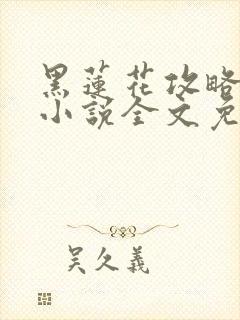 黑蓮花攻略
小說全文免
吴久義